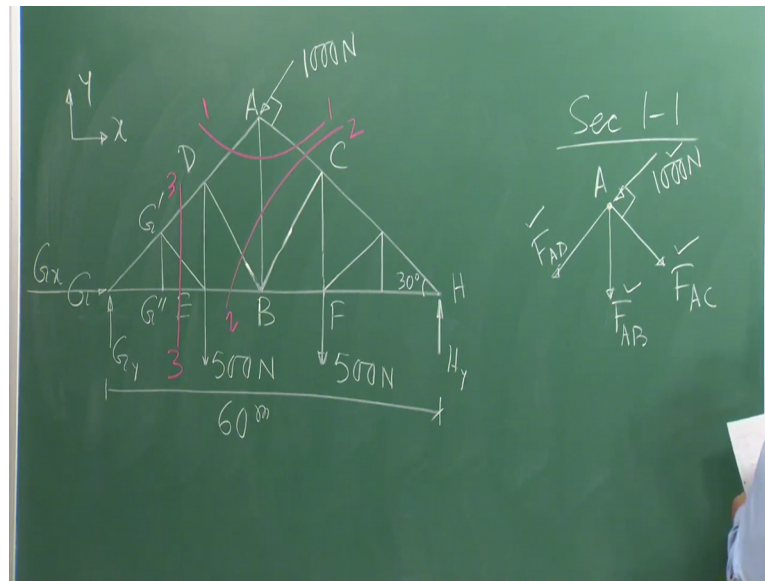 Y
x
1000N
A
1
1
2
D
C
3
G'
Gx
G
G"
E
B
F
30°
H
2
Gy
3
500N
500N
Hy
60 m
Sec 1-1
A
1000N
F AD
F AB
F AC